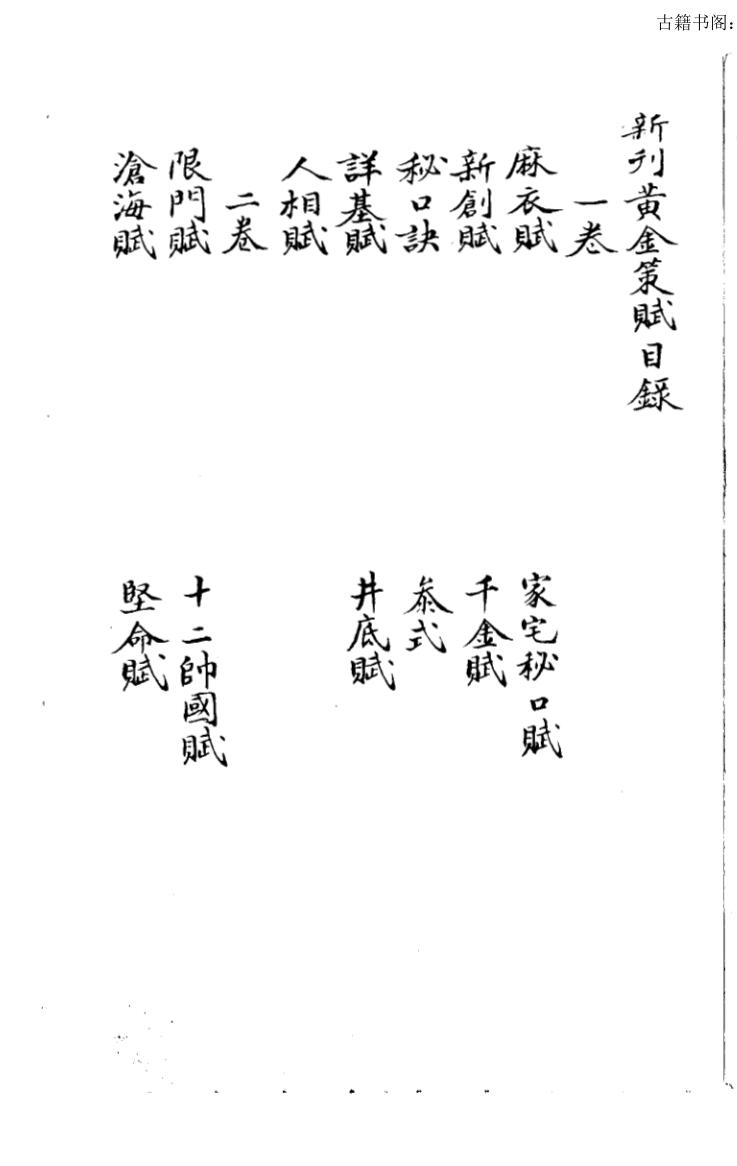 古籍书阁：
新刋黄金策賦目録
一卷
麻衣賦
家宅秘口賦
新創賦
千金賦
秘口訣
叅式
詳基賦
井底賦
人相賦
二卷
限門賦
十二帥國賦
滄海賦
堅命賦